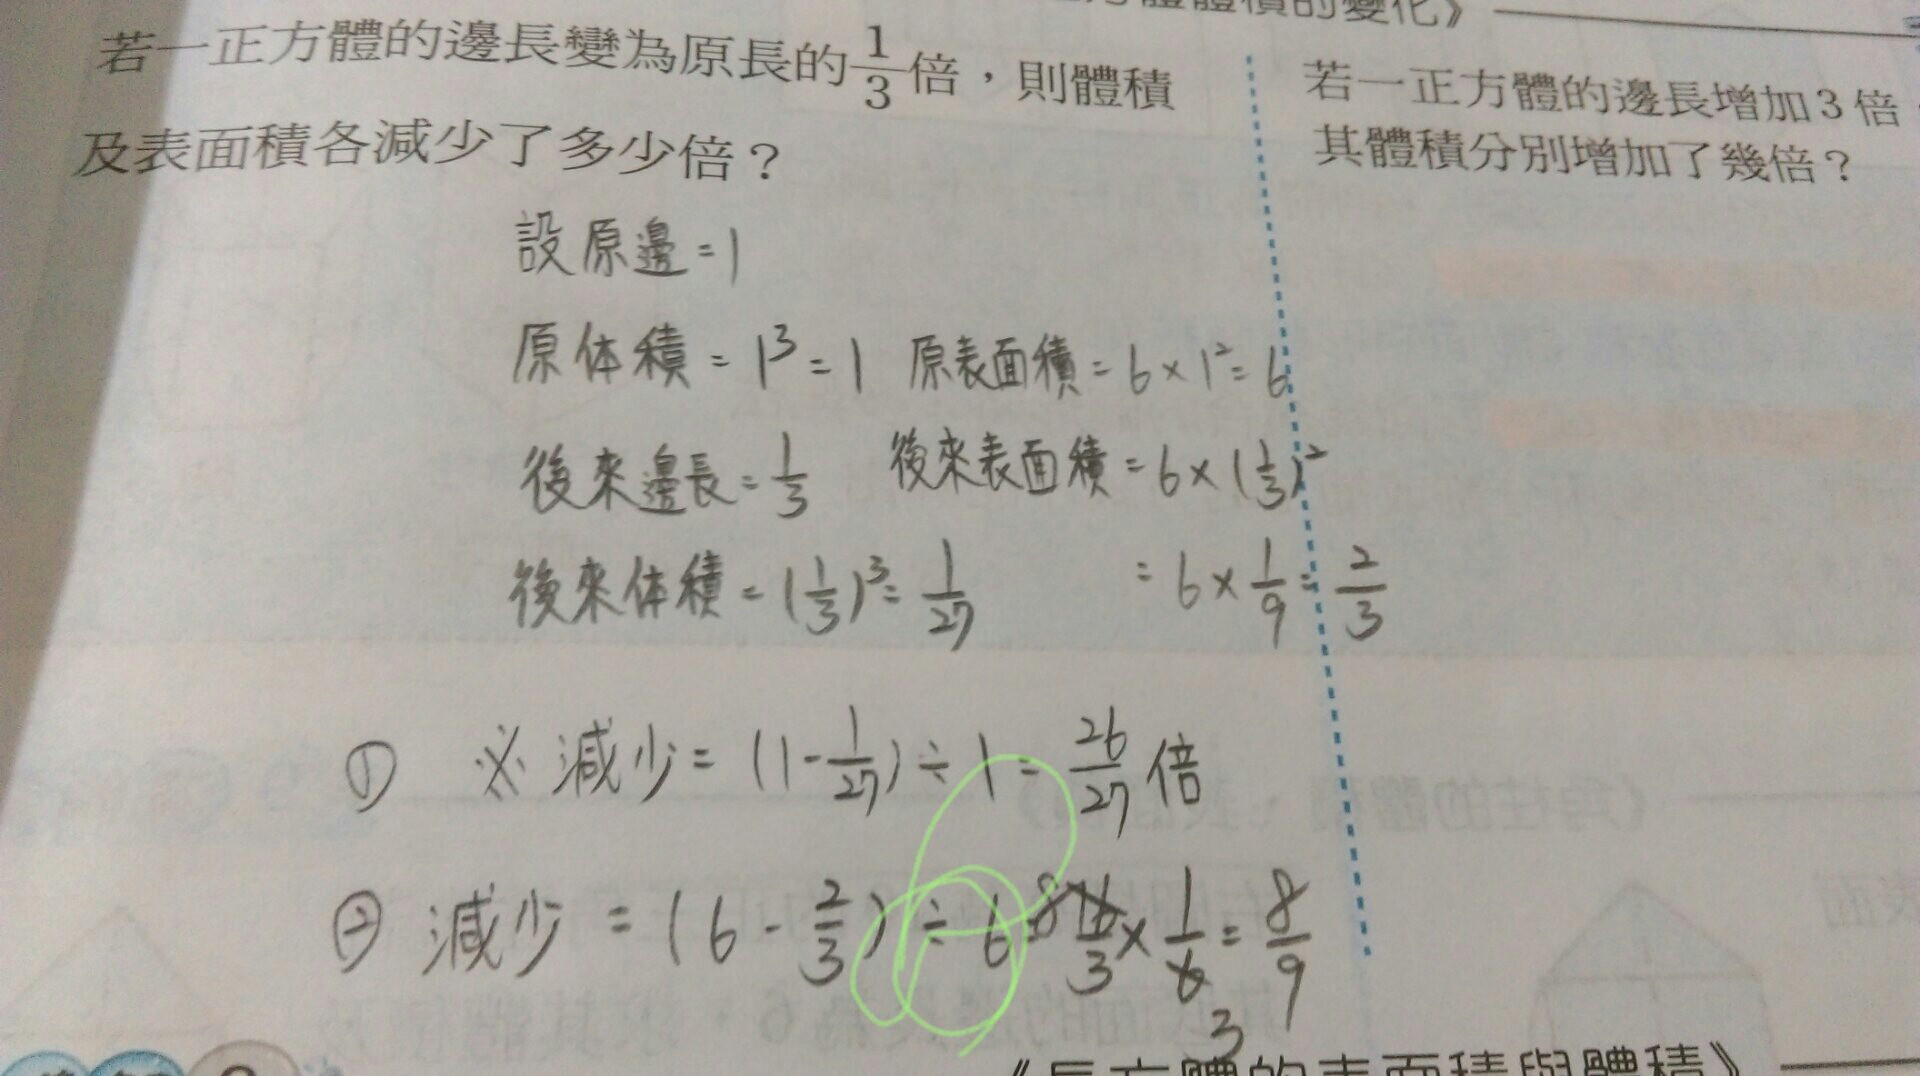 體積的變化》
若一正方體的邊長變為原長的1/3倍，則體積
及表面積各減少了多少倍？
若一正方體的邊長增加3倍
其體積分別增加了幾倍？
設原邊=1
原体積=1³=1 原表面積=6×1²=6
後來邊長=1/3 後來表面積=6×(1/3)²
後來体積=(1/3)³=1/27 =6×1/9=2/3
① ※減少=(1-1/27)÷1=26/27倍
② 減少=(6-2/3)÷6=16/3×1/6=8/9
8
3
《長方體的表面積與體積》